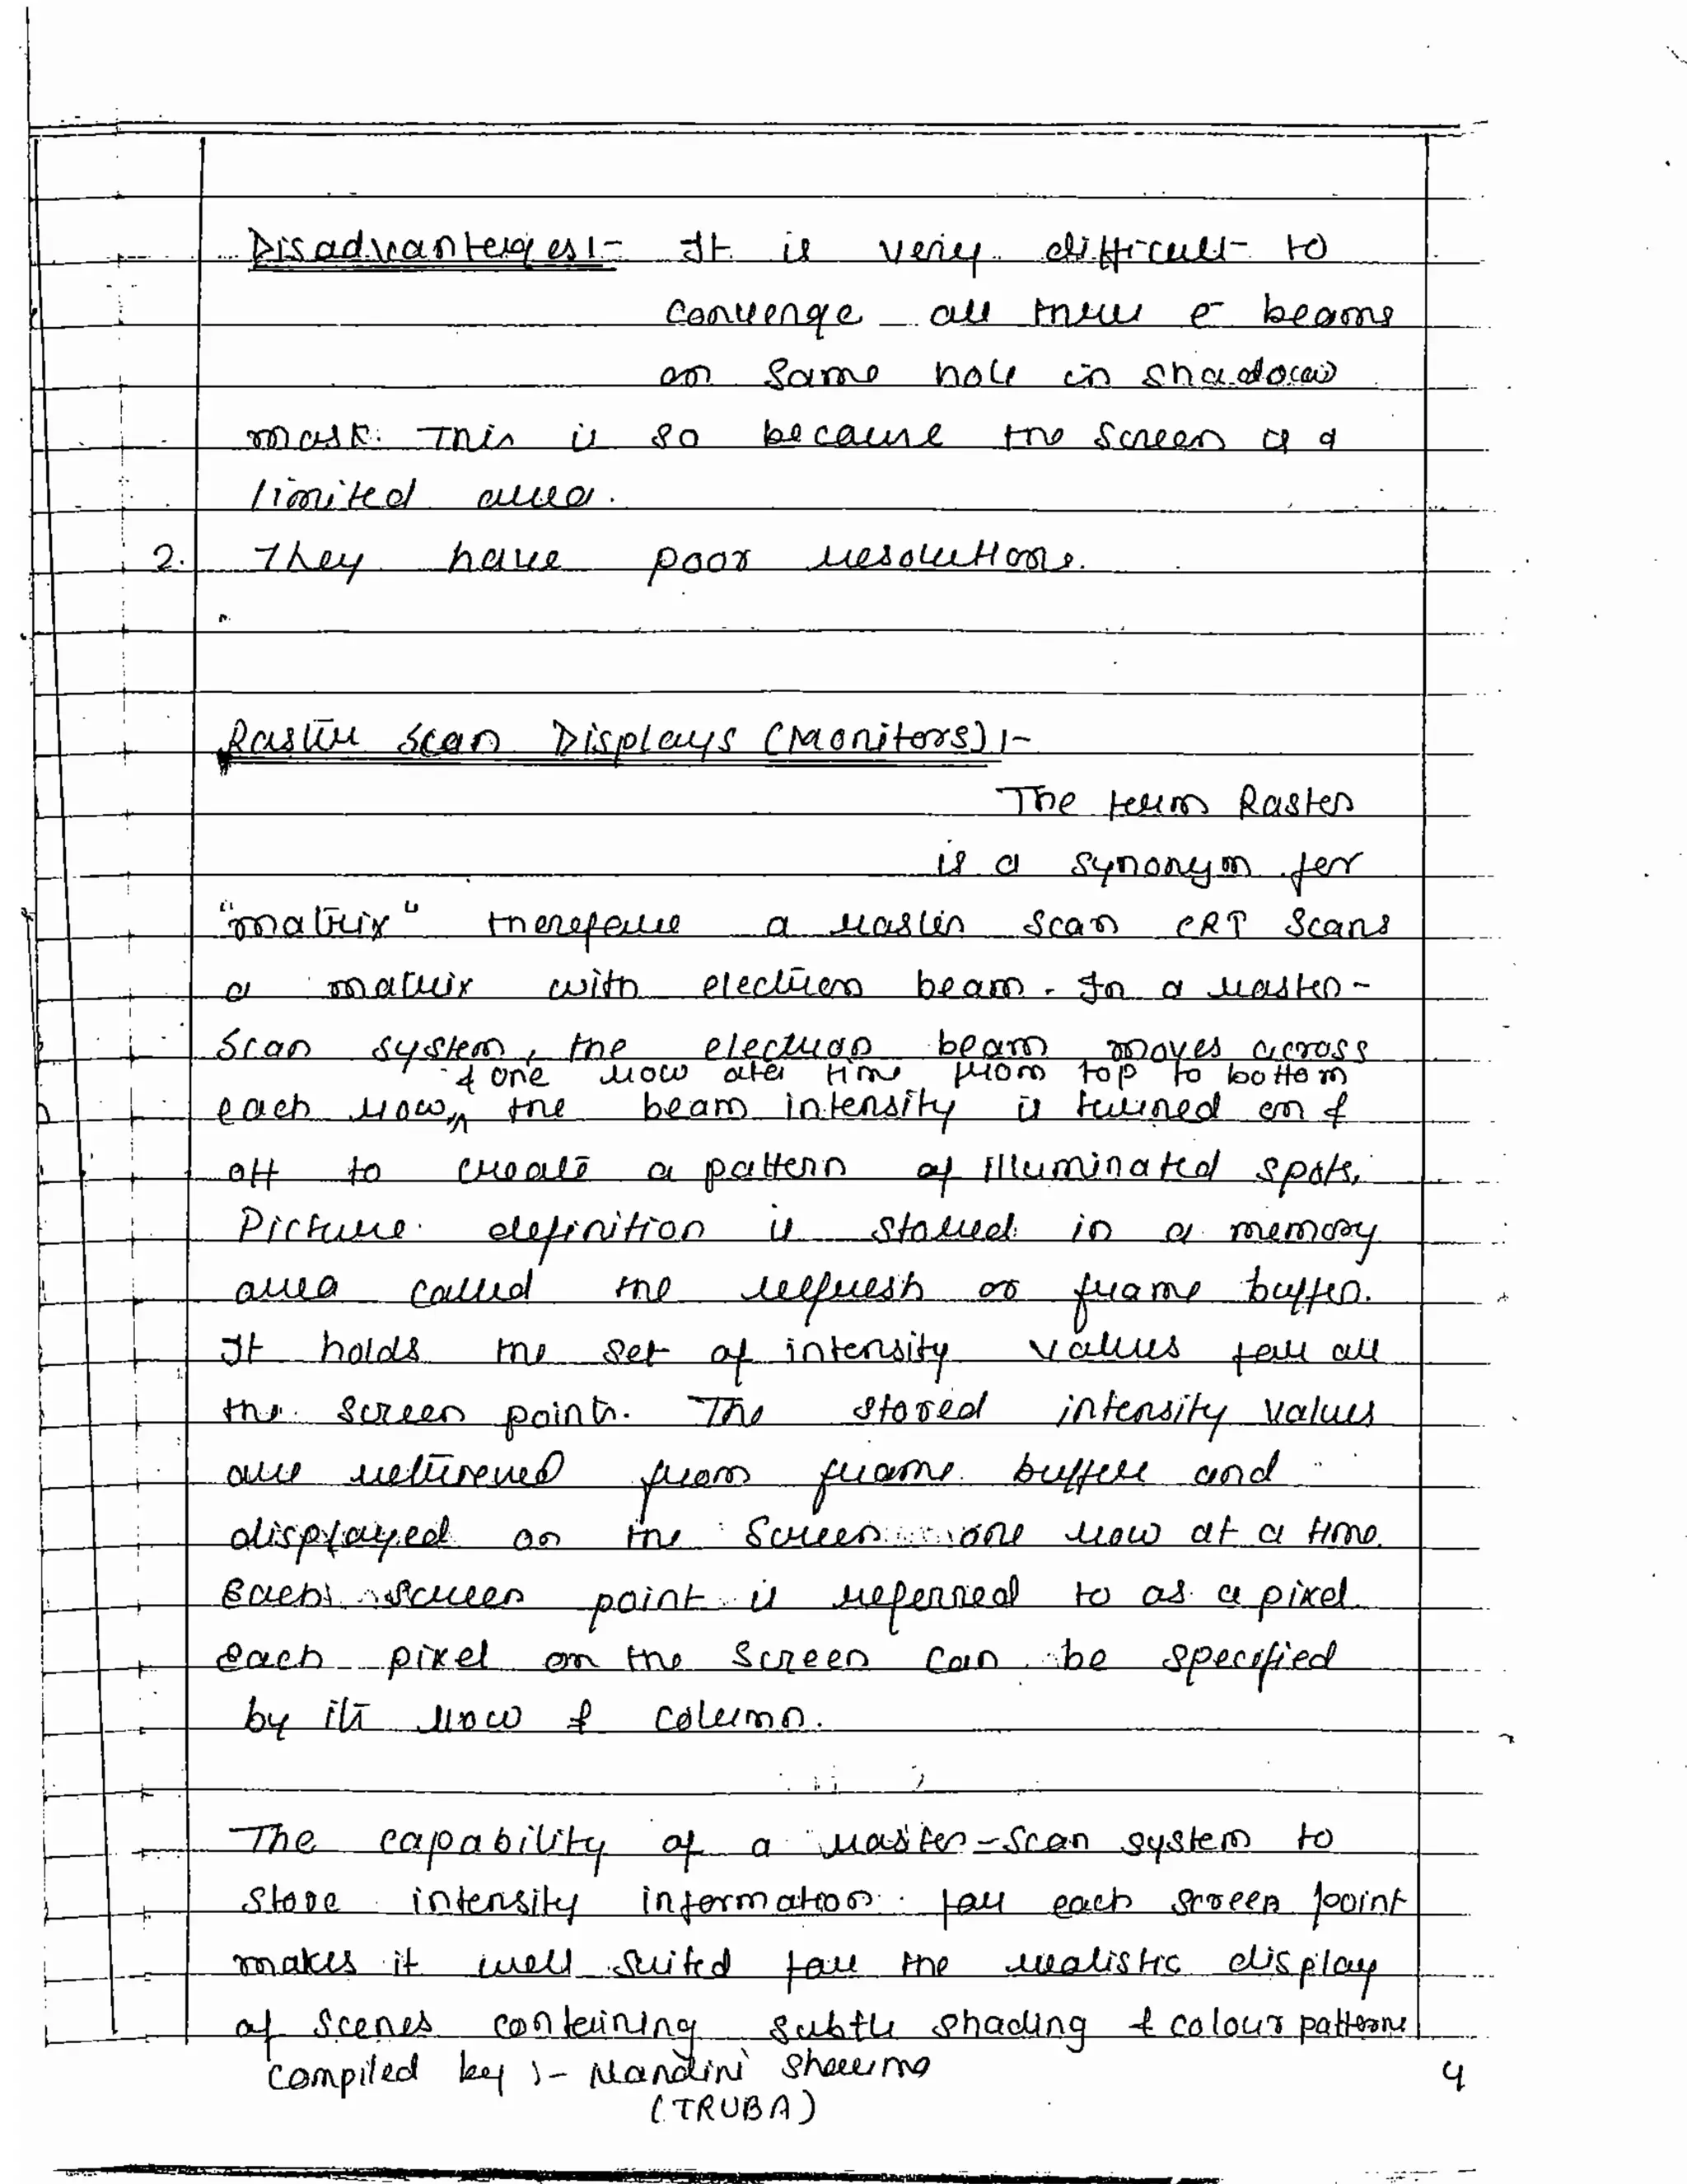 Disadvantages :- It is very difficult to
converge all three e- beams
on same hole in shadow
mask. This is so because the screen is a
limited area.
2. They have poor resolutions.
Raster Scan Displays (Monitors) :-
The term Raster
is a synonym for
"matrix" therefore a raster scan CRT scans
a matrix with electron beam. In a raster-
scan system, the electron beam moves across
& one row ater time from top to bottom
each row, the beam intensity is turned on &
off to create a pattern of illuminated spots.
Picture definition is stored in a memory
area called the refresh or frame buffer.
It holds the set of intensity values for all
the screen points. The stored intensity values
are retireved from frame buffer and
displayed on the screen one row at a time.
Each screen point is referred to as a pixel.
each pixel on the screen can be specified
by its row & column.
The capability of a raster-scan system to
store intensity information for each screen point
makes it well suited for the realistic display
of scenes containing subtle shading & colour patterns
Compiled by :- Nandini Sharma
(TRUBA)
4